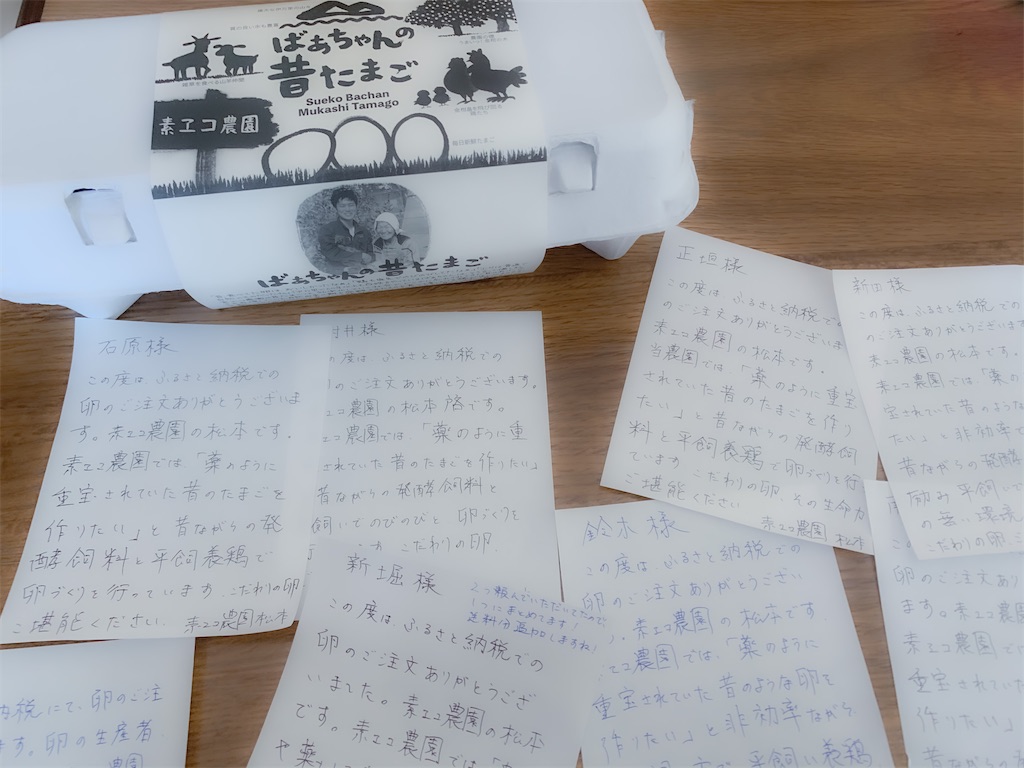 ばあちゃんの
昔たまご
Sueko Bachan
Mukashi Tamago
素ヱコ農園
毎日新鮮たまご
ばあちゃんの昔たまご
石原様
この度は、ふるさと納税での
卵のご注文ありがとうございま
す。素ヱコ農園の松本です。
素ヱコ農園では、「薬のように
重宝されていた昔のたまごを
作りたい」と昔ながらの発
酵飼料と平飼養鶏で
卵づくりを行っています。こだわりの卵
ご堪能ください。 素ヱコ農園松本
井様
の度は、ふるさと納税での
のご注文ありがとうございます。
ヱコ農園の松本 です。
ヱコ農園では、「薬のように重
されていた昔のたまごを作りたい」
昔ながらの発酵飼料と
飼いでのびのびと 卵づくりを
こだわりの卵、
正垣様
この度は、ふるさと納税での
のご注文ありがとうございま
素ヱコ農園の松本です。
当農園では、「薬のように重宝
されていた昔のたまごを作り
たい」と昔ながらの発酵飼
料と平飼養鶏で卵づくりを行
ています こだわりの卵、その生命力
ご堪能ください 素ヱコ農園 松本
新田様
この度は、ふるさと納税での
のご注文ありがとうございます
素ヱコ農園の松本です。
素ヱコ農園では「薬の
宝されていた昔のような
たい」と非効率で
昔ながらの発酵
励み平飼いで
の無い環境
こだわりの卵、
新堀様
2つ頼んでいただいてたので、
1つにまとめてます!
送料分追加しますね!
この度は、ふるさと納税での
卵のご注文ありがとうござ
いました。素ヱコ農園の松本
です。素ヱコ農園では「
鈴木様
この度は、ふるさと納税での
卵のご注文ありがとうござい
素ヱコ農園の松本です
ヱコ農園では、「薬のように
重宝されていた昔のような卵を
作りたい」と非効率ながら
平飼い養鶏
卵のご注文あり
ます。素ヱコ農
素ヱコ農園では
重宝されていた
作りたい」
昔ながらの
納税にて、卵のご注
ます。卵の生産者
農園